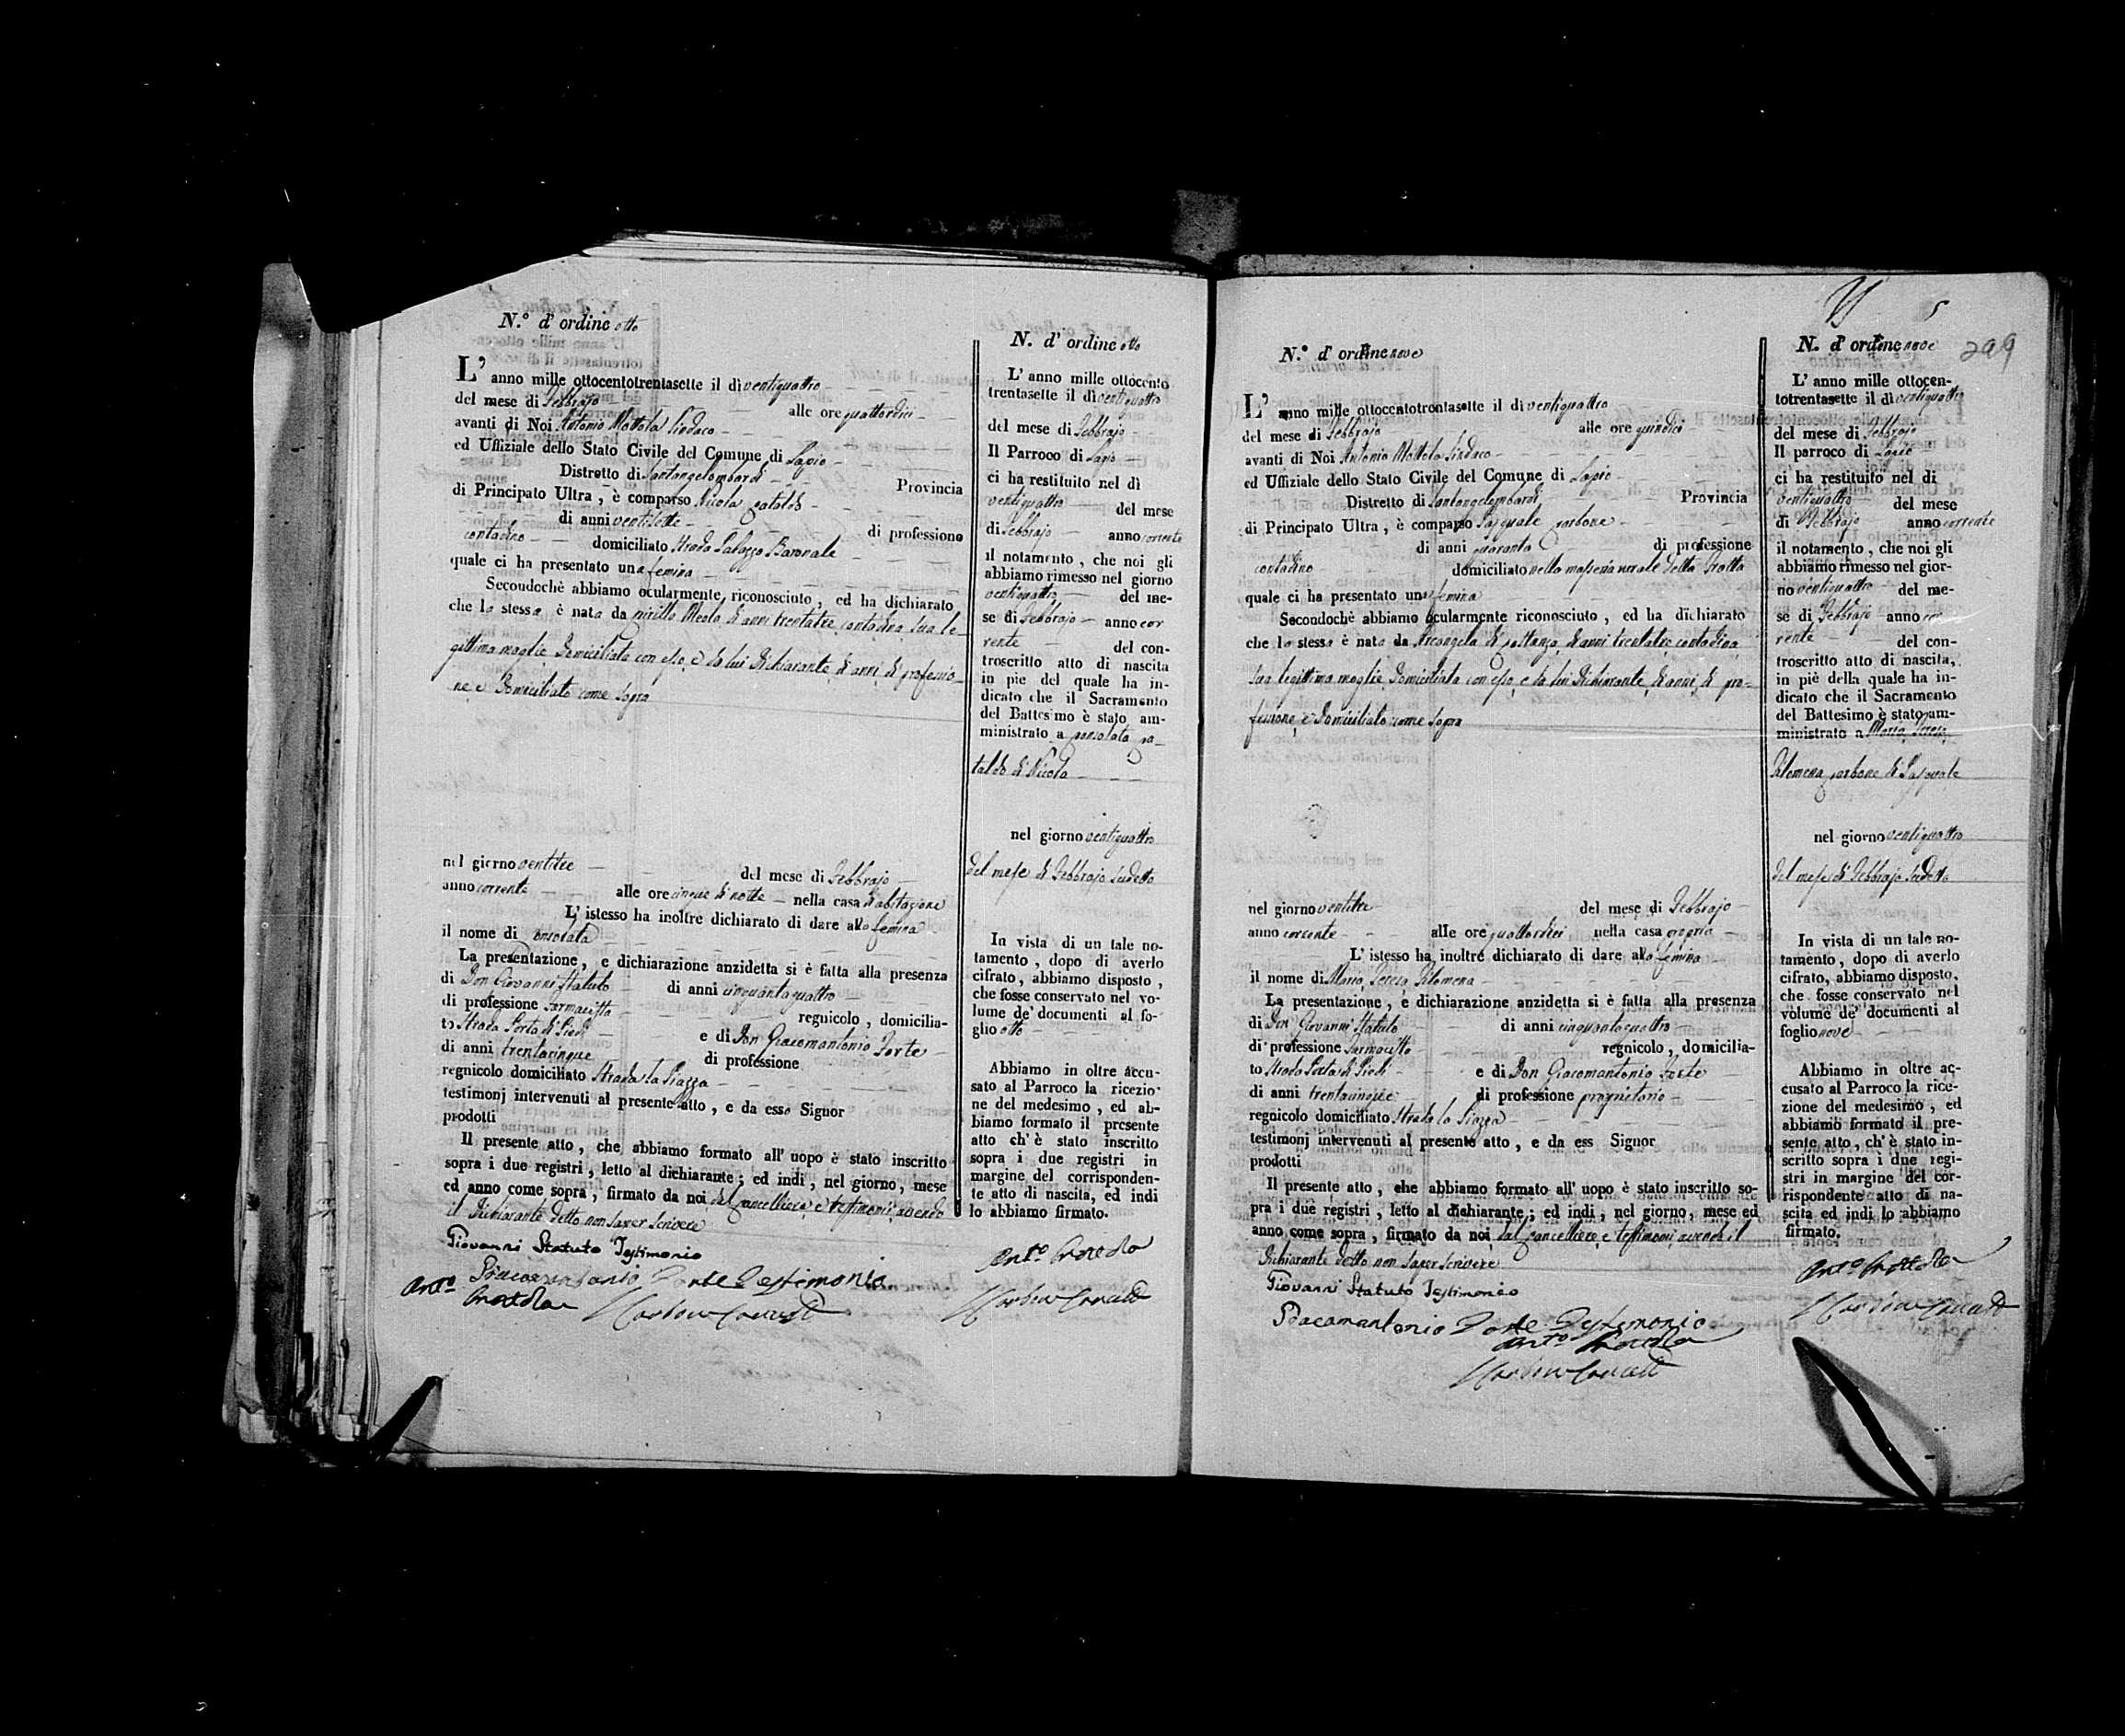 N.° d' ordine otto
L' anno mille ottocentotrentasette il dì ventiquattro
del mese di Febbrajo alle ore quattordici
avanti di Noi Antonio Mottola Sindaco
ed Uffiziale dello Stato Civile del Comune di Lapio
Distretto di Santangelombardi Provincia
di Principato Ultra, è comparso Nicola Cataldo
di anni ventisette di professione
contadino domiciliato Strada Palazzo Baronale
quale ci ha presentato una femina
Secondochè abbiamo ocularmente riconosciuto, ed ha dichiarato
che la stessa è nata da Meola di anni trentatre contadina sua le-
gittima moglie domiciliata con esso, e da lui Dichiarante di anni, di professio-
ne e domiciliato come sopra
nel giorno ventitre del mese di Febbrajo
anno corrente alle ore cinque di notte nella casa d'abitazione
L' istesso ha inoltre dichiarato di dare alla femina
il nome di Consolata
La presentazione, e dichiarazione anzidetta si è fatta alla presenza
di Don Giovanni Statuto di anni cinquantaquattro
di professione Farmacista regnicolo, domicilia-
to Strada Porta di Piedi e di Don Giacomantonio Forte
di anni trentacinque di professione
regnicolo domiciliato Strada la Piazza
testimonj intervenuti al presente atto, e da esso Signor
prodotti
Il presente atto, che abbiamo formato all' uopo è stato inscritto
sopra i due registri, letto al dichiarante; ed indi, nel giorno, mese
ed anno come sopra, firmato da noi dal Cancelliere e testimonj avendo
il Dichiarante detto non saper scrivere
Giovanni Statuto Testimonio
Giacomantonio Forte Testimonio
Ant.o Mottola
N. d' ordine otto
L' anno mille ottocento
trentasette il dì ventiquattro
del mese di Febbrajo
Il Parroco di Lapio
ci ha restituito nel dì
ventiquattro del mese
di Febbrajo anno corrente
il notamento, che noi gli
abbiamo rimesso nel giorno
ventiquattro del me-
se di Febbrajo anno cor
rente del con-
troscritto atto di nascita
in pie del quale ha in-
dicato che il Sacramento
del Battesimo è stato am-
ministrato a Consolata Ca-
taldo di Nicola
nel giorno ventiquattro
del mese di Febbrajo sudetto
In vista di un tale no-
tamento, dopo di averlo
cifrato, abbiamo disposto,
che fosse conservato nel vo-
lume de' documenti al fo-
glio otto
Abbiamo in oltre accu-
sato al Parroco la ricezio-
ne del medesimo, ed ab-
biamo formato il presente
atto ch' è stato inscritto
sopra i due registri in
margine del corrisponden-
te atto di nascita, ed indi
lo abbiamo firmato.
Ant.o Mottola
5
299
N.° d' ordine nove
L' anno mille ottocentotrentasette il dì ventiquattro
del mese di Febbrajo alle ore quindici
avanti di Noi Antonio Mottola Sindaco
ed Uffiziale dello Stato Civile del Comune di Lapio
Distretto di Santangelombardi Provincia
di Principato Ultra, è comparso Pasquale Carbone
di anni quaranta di professione
contadino domiciliato nella masseria rurale della Grotta
quale ci ha presentato una femina
Secondochè abbiamo ocularmente riconosciuto, ed ha dichiarato
che la stessa è nata da Arcangela di Costanzo di anni trentatre contadina
sua legittima moglie domiciliata con esso, e da lui Dichiarante, di anni, di pro-
fessione, e domiciliato come sopra
nel giorno ventitre del mese di Febbrajo
anno corrente alle ore quattordici nella casa propria
L' istesso ha inoltre dichiarato di dare alla femina
il nome di Maria Teresa Filomena
La presentazione, e dichiarazione anzidetta si è fatta alla presenza
di Don Giovanni Statuto di anni cinquantaquattro
di professione Farmacista regnicolo, domicilia-
to Strada Porta di Piedi e di Don Giacomantonio Forte
di anni trentacinque di professione proprietario
regnicolo domiciliato Strada la Piazza
testimonj intervenuti al presente atto, e da ess Signor
prodotti
Il presente atto, che abbiamo formato all' uopo è stato inscritto so-
pra i due registri, letto al dichiarante; ed indi, nel giorno, mese ed
anno come sopra, firmato da noi dal Cancelliere, e testimonj avendo il
Dichiarante detto non saper scrivere
Giovanni Statuto Testimonio
Giacomantonio Forte Testimonio
Ant.o Mottola
N. d' ordine nove
L' anno mille ottocen-
totrentasette il dì ventiquattro
del mese di Febbrajo
Il parroco di Lapio
ci ha restituito nel dì
ventiquattro del mese
di Febbrajo anno corrente
il notamento, che noi gli
abbiamo rimesso nel gior-
no ventiquattro del me-
se di Febbrajo anno cor
rente del con-
troscritto atto di nascita,
in piè della quale ha in-
dicato che il Sacramento
del Battesimo è stato am-
ministrato a Maria Teresa
Filomena Carbone di Pasquale
nel giorno ventiquattro
del mese di Febbrajo sudetto
In vista di un tale no-
tamento, dopo di averlo
cifrato, abbiamo disposto,
che fosse conservato nel
volume de' documenti al
foglio nove
Abbiamo in oltre ac-
cusato al Parroco la rice-
zione del medesimo, ed
abbiamo formato il pre-
sente atto, ch' è stato in-
scritto sopra i due regi-
stri in margine del cor-
rispondente atto di na-
scita ed indi lo abbiamo
firmato.
Ant.o Mottola